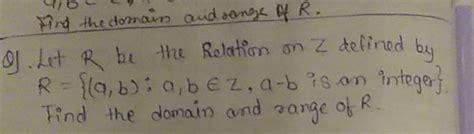 Find the domain and range of R.
Q). Let R be the Relation on Z defined by
R = {(a, b) ; a, b ∈ Z, a-b is an integer}.
Find the domain and range of R.